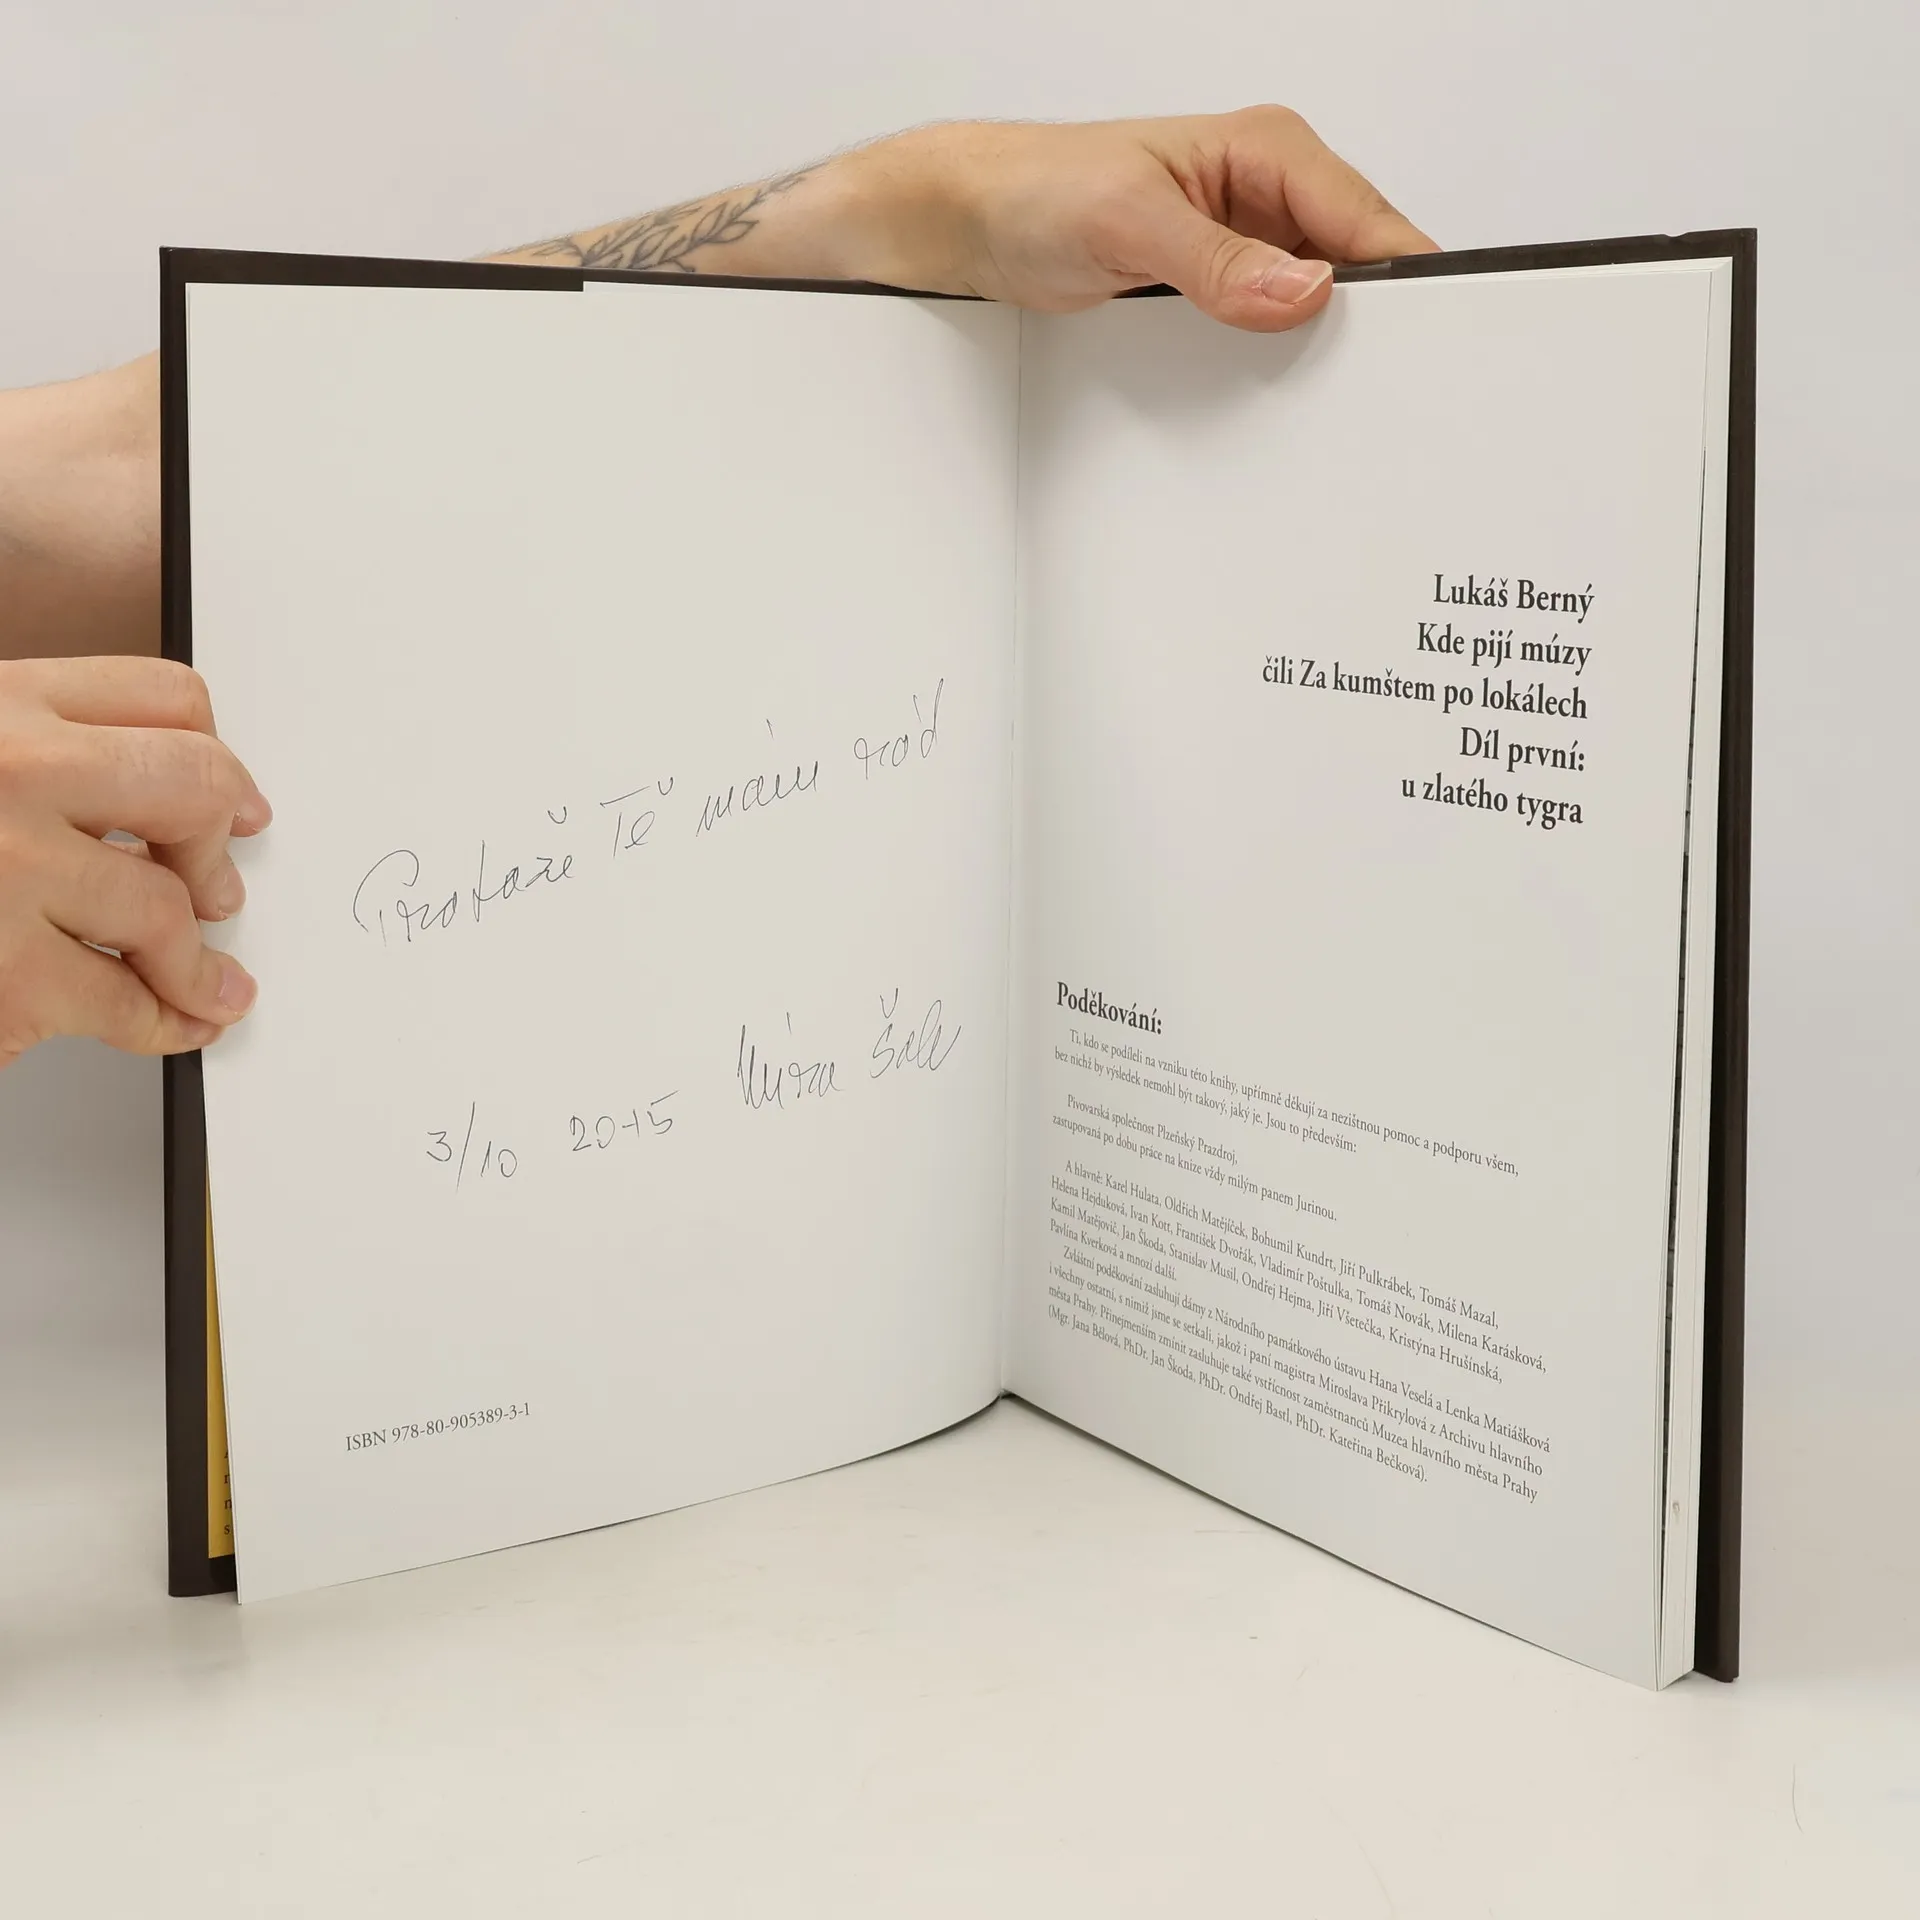 Protože Tě mám rád
3/10 2015 Míra
ISBN 978-80-905389-3-1
Lukáš Berný
Kde pijí múzy
čili Za kumštem po lokálech
Díl první:
u zlatého tygra
Poděkování:
Ti, kdo se podíleli na vzniku této knihy, upřímně děkují za nezištnou pomoc a podporu všem,
bez nichž by výsledek nemohl být takový, jaký je. Jsou to především:
Pivovarská společnost Plzeňský Prazdroj,
zastupovaná po dobu práce na knize vždy milým panem Jurinou.
A hlavně: Karel Hulata, Oldřich Matějíček, Bohumil Kundrt, Jiří Pulkrábek, Tomáš Mazal,
Helena Hejduková, Ivan Kott, František Dvořák, Vladimír Poštulka, Tomáš Novák, Milena Karásková,
Kamil Matějovič, Jan Škoda, Stanislav Musil, Ondřej Hejma, Jiří Všetečka, Kristýna Hrušínská,
Pavlína Kverková a mnozí další.
Zvláštní poděkování zasluhují dámy z Národního památkového ústavu Hana Veselá a Lenka Matiášková
i všechny ostatní, s nimiž jsme se setkali, jakož i paní magistra Miroslava Přikrylová z Archivu hlavního
města Prahy. Přinejmenším zmínit zasluhuje také vstřícnost zaměstnanců Muzea hlavního města Prahy
(Mgr. Jana Bělová, PhDr. Jan Škoda, PhDr. Ondřej Bastl, PhDr. Kateřina Bečková).